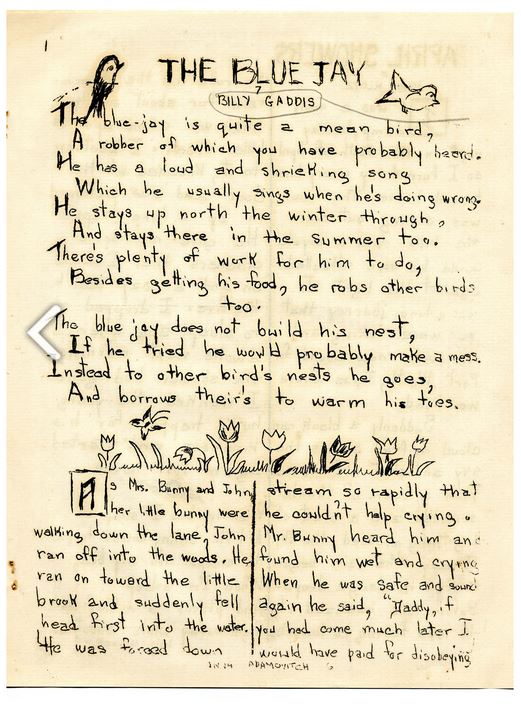 1
THE BLUE JAY
BILLY GADDIS 7
The blue-jay is quite a mean bird,
A robber of which you have probably heard.
He has a loud and shrieking song
Which he usually sings when he's doing wrong.
He stays up north the winter through,
And stays there in the summer too.
There's plenty of work for him to do,
Besides getting his food, he robs other birds
too.
The blue jay does not build his nest,
If he tried he would probably make a mess.
Instead to other bird's nests he goes,
And borrows their's to warm his toes.
As Mrs. Bunny and John
her little bunny were
walking down the lane, John
ran off into the woods. He
ran on toward the little
brook and suddenly fell
head first into the water.
He was forced down
stream so rapidly that
he couldn't help crying.
Mr. Bunny heard him and
found him wet and crying
When he was safe and sound
again he said, "Daddy, if
you had come much later I
would have paid for disobeying
ADAMOVITCH